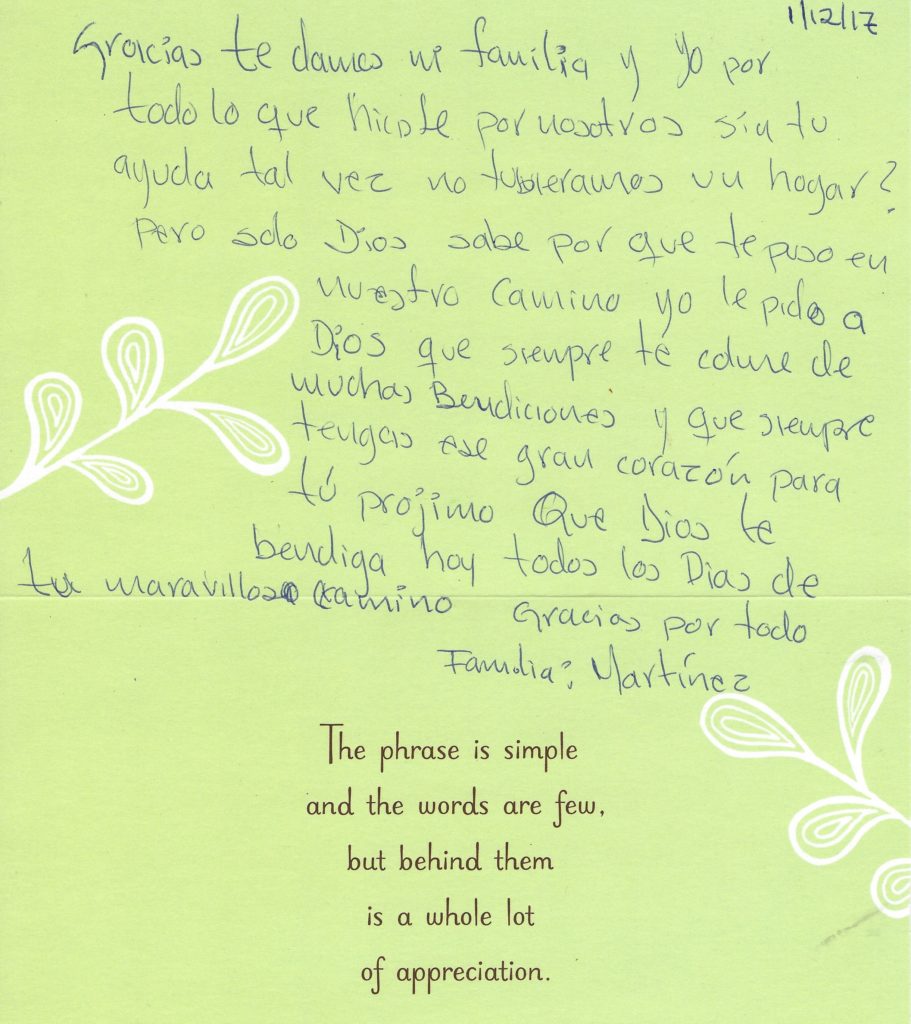 1/12/17
Gracias te damos mi familia y yo por
todo lo que hicste por nosotros sin tu
ayuda tal vez no tubieramos un hogar?
Pero solo Dios sabe por que te puso en
nuestro Camino yo le pido a
Dios que siempre te colme de
muchas Bendiciones y que siempre
tengas ese gran corazón para
tú projimo Que Dios te
bendiga hoy todos los Dias de
tu maravilloso camino
Gracias por todo
Familia: Martínez
The phrase is simple
and the words are few,
but behind them
is a whole lot
of appreciation.